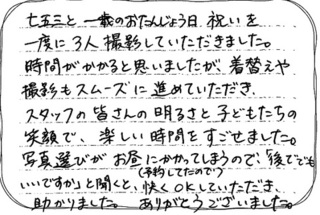 七五三と一歳のおたんじょう日祝いを
一度に3人撮影していただきました。
時間がかかると思いましたが、着替えや
撮影もスムーズに進めていただき、
スタッフの皆さんの明るさと子どもたちの
笑顔で、楽しい時間をすごせました。
写真選びがお昼にかかってしまうので、「後ででも
(予約してたので)
いいですか」と聞くと、快くOKしていただき、
助かりました。ありがとうございました。